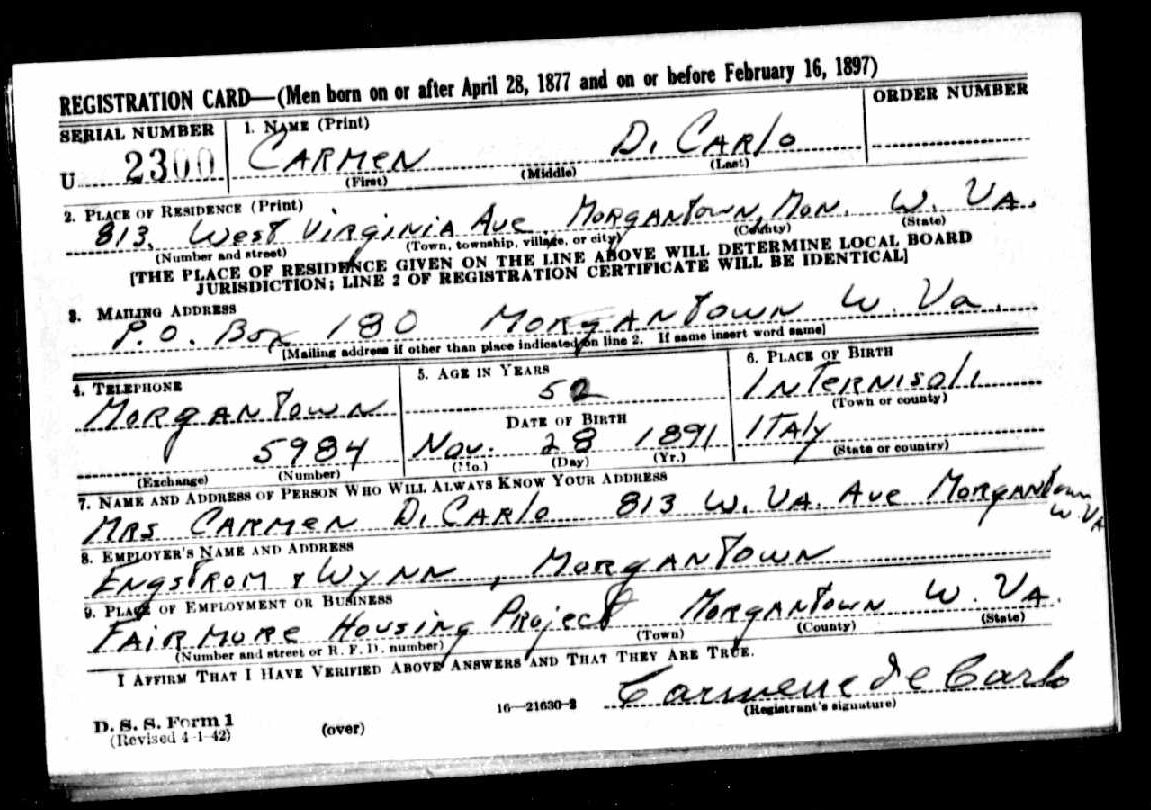 REGISTRATION CARD—(Men born on or after April 28, 1877 and on or before February 16, 1897)
SERIAL NUMBER 1. NAME (Print) ORDER NUMBER
U 2300 CARMEN Di CARlo
(First) (Middle) (Last)
2. PLACE OF RESIDENCE (Print)
813. West Virginia Ave. MorganTown, Mon. W. VA.
(Number and street) (Town, township, village, or city) (County) (State)
[THE PLACE OF RESIDENCE GIVEN ON THE LINE ABOVE WILL DETERMINE LOCAL BOARD
JURISDICTION; LINE 2 OF REGISTRATION CERTIFICATE WILL BE IDENTICAL]
3. MAILING ADDRESS
P.O. Box 180 MorganTown W. Va.
[Mailing address if other than place indicated on line 2. If same insert word same]
4. TELEPHONE 5. AGE IN YEARS 6. PLACE OF BIRTH
MorganTown 52 InTernisoli
(Town or county)
DATE OF BIRTH
5984 Nov. 28 1891 ITAly
(Exchange) (Number) (Mo.) (Day) (Yr.) (State or country)
7. NAME AND ADDRESS OF PERSON WHO WILL ALWAYS KNOW YOUR ADDRESS
MRS CARMEN Di CARlo 813 W. VA. Ave MorganTown
W. VA
8. EMPLOYER'S NAME AND ADDRESS
Engstrom & Wynn, MorganTown
9. PLACE OF EMPLOYMENT OR BUSINESS
FAIRMORE Housing Project MorganTown W. VA.
(Number and street or R. F. D. number) (Town) (County) (State)
I AFFIRM THAT I HAVE VERIFIED ABOVE ANSWERS AND THAT THEY ARE TRUE.
Carmene de Carlo
D. S. S. Form 1 16—21630-2 (Registrant's signature)
(Revised 4-1-42) (over)